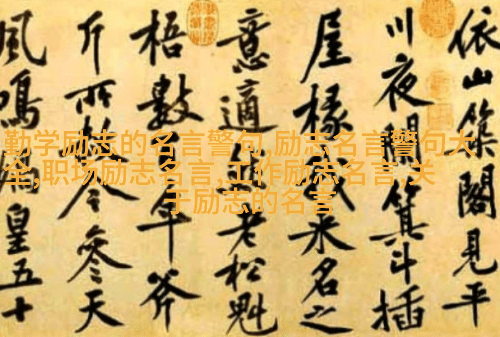 依山築閣見平
川夜闌箕斗插
屋椽我來名之
意適然老松魁
梧數百年斧
斤所赦今參天
風鳴媧皇五十
勤学励志的名言警句,励志名言警句大
全,职场励志名言,工作励志名言,关
于励志的名言